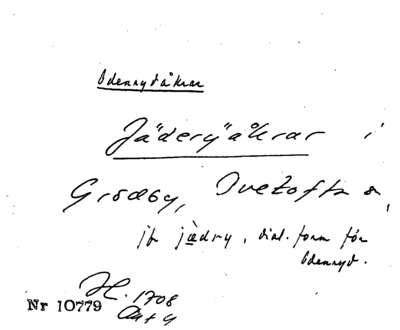 Ödennydåkrar
Jäderyåkrar i
Grödby, Ovetofta s,
jfr jædry, dial. form för
Ödennyd.
H. 1708
Nr 10779